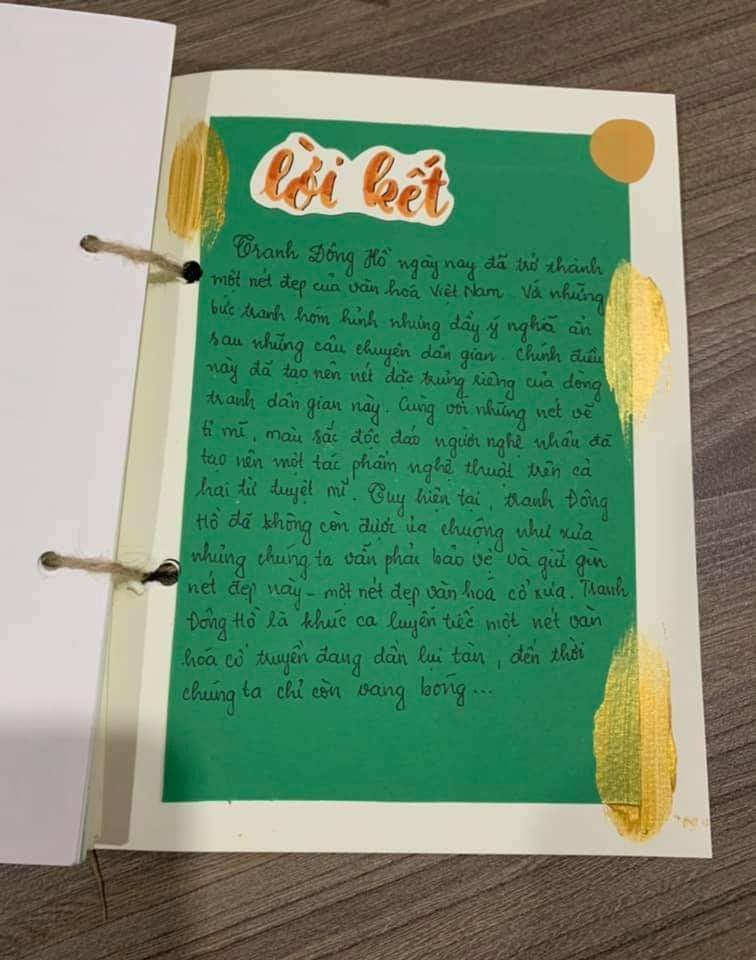 lời kết
Tranh Đông Hồ ngày nay đã trở thành
một nét đẹp của văn hoá Việt Nam Với những
bức tranh hóm hỉnh nhưng đầy ý nghĩa ẩn
sau những câu chuyện dân gian. Chính điều
này đã tạo nên nét đặc trưng riêng của dòng
tranh dân gian này. Cùng với những nét vẽ
tỉ mĩ, màu sắc độc đáo người nghệ nhân đã
tạo nên một tác phẩm nghệ thuật trên cả
hai từ tuyệt mĩ. Tuy hiện tại, tranh Đông
Hồ đã không còn được ưa chuộng như xưa
nhưng chúng ta vẫn phải bảo vệ và giữ gìn
nét đẹp này - một nét đẹp văn hoá cổ xưa. Tranh
Đông Hồ là khúc ca luyến tiếc một nét văn
hoá cổ truyền đang dần lụi tàn, đến thời
chúng ta chỉ còn vang bóng...